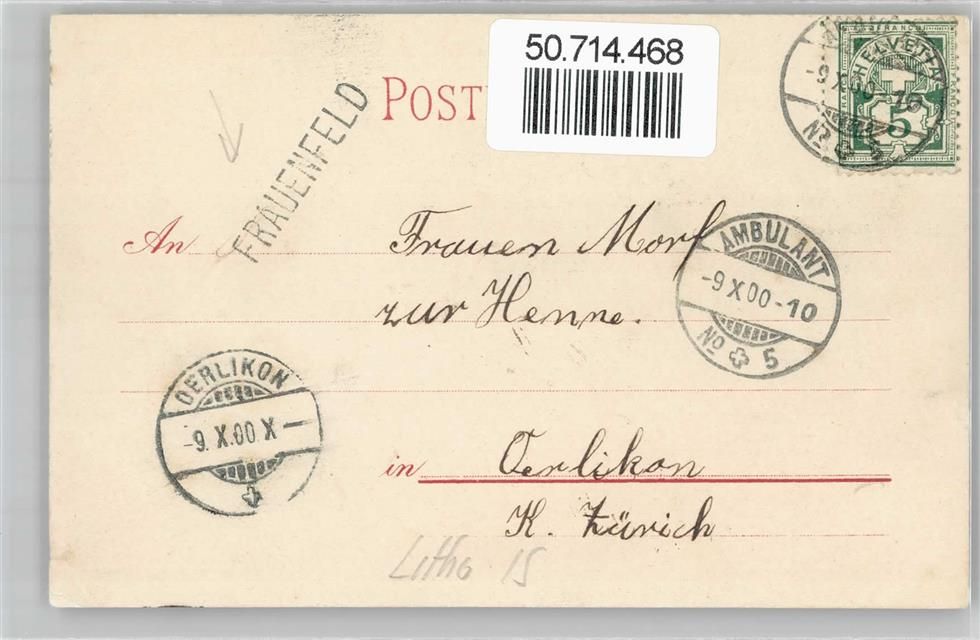 50.714.468
POST
HELVETIA
5
-9 X 00-10
No 5
FRAUENFELD
An Frauen Morf
zur Henne.
AMBULANT
-9 X 00-10
No 5
OERLIKON
-9. X.00 X-
in Oerlikon
K. Zürich
Litho 15